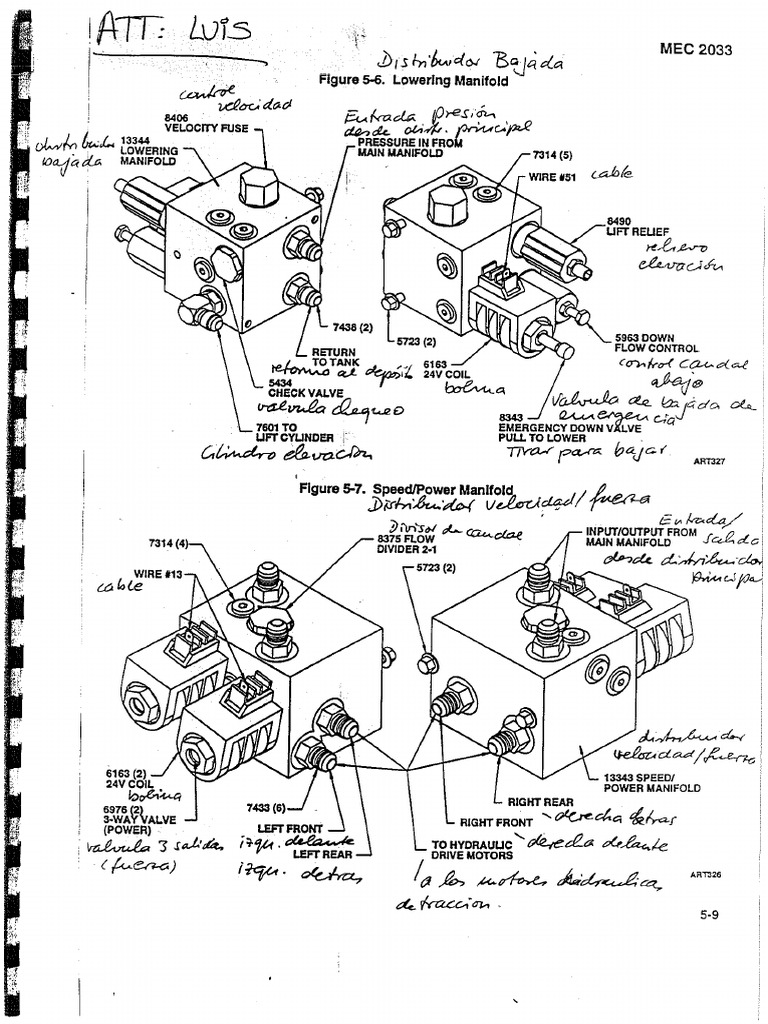 ATT: LUIS
MEC 2033
Distribuidor Bajada
Figure 5-6. Lowering Manifold
control
velocidad
8406
VELOCITY FUSE
Entrada Presión
desde distr. principal
PRESSURE IN FROM
MAIN MANIFOLD
distribuidor
bajada
13344
LOWERING
MANIFOLD
7314 (5)
WIRE #51
cable
8490
LIFT RELIEF
relievo
elevación
7438 (2)
RETURN
TO TANK
retorno al depósito
5723 (2)
6163
24V COIL
bobina
5963 DOWN
FLOW CONTROL
control caudal
abajo
5434
CHECK VALVE
valvula chequeo
7601 TO
LIFT CYLINDER
Cilindro elevación
Valvula de bajada de
emergencia
8343
EMERGENCY DOWN VALVE
PULL TO LOWER
Tirar para bajar
ART327
Figure 5-7. Speed/Power Manifold
Distribuidor velocidad/fuerza
Divisor de caudal
8375 FLOW
DIVIDER 2-1
7314 (4)
WIRE #13
cable
5723 (2)
Entrada/
salida
INPUT/OUTPUT FROM
MAIN MANIFOLD
desde distribuidor
principal
distribuidor
velocidad/fuerza
13343 SPEED/
POWER MANIFOLD
6163 (2)
24V COIL
bobina
6976 (2)
3-WAY VALVE
(POWER)
valvula 3 salidas
(fuerza)
7433 (6)
LEFT FRONT
izqu. delante
LEFT REAR
izqu. detras
RIGHT REAR
- derecha detras
RIGHT FRONT
- derecha delante
TO HYDRAULIC
DRIVE MOTORS
a los motores hidraulicas
de traccion.
ART326
5-9